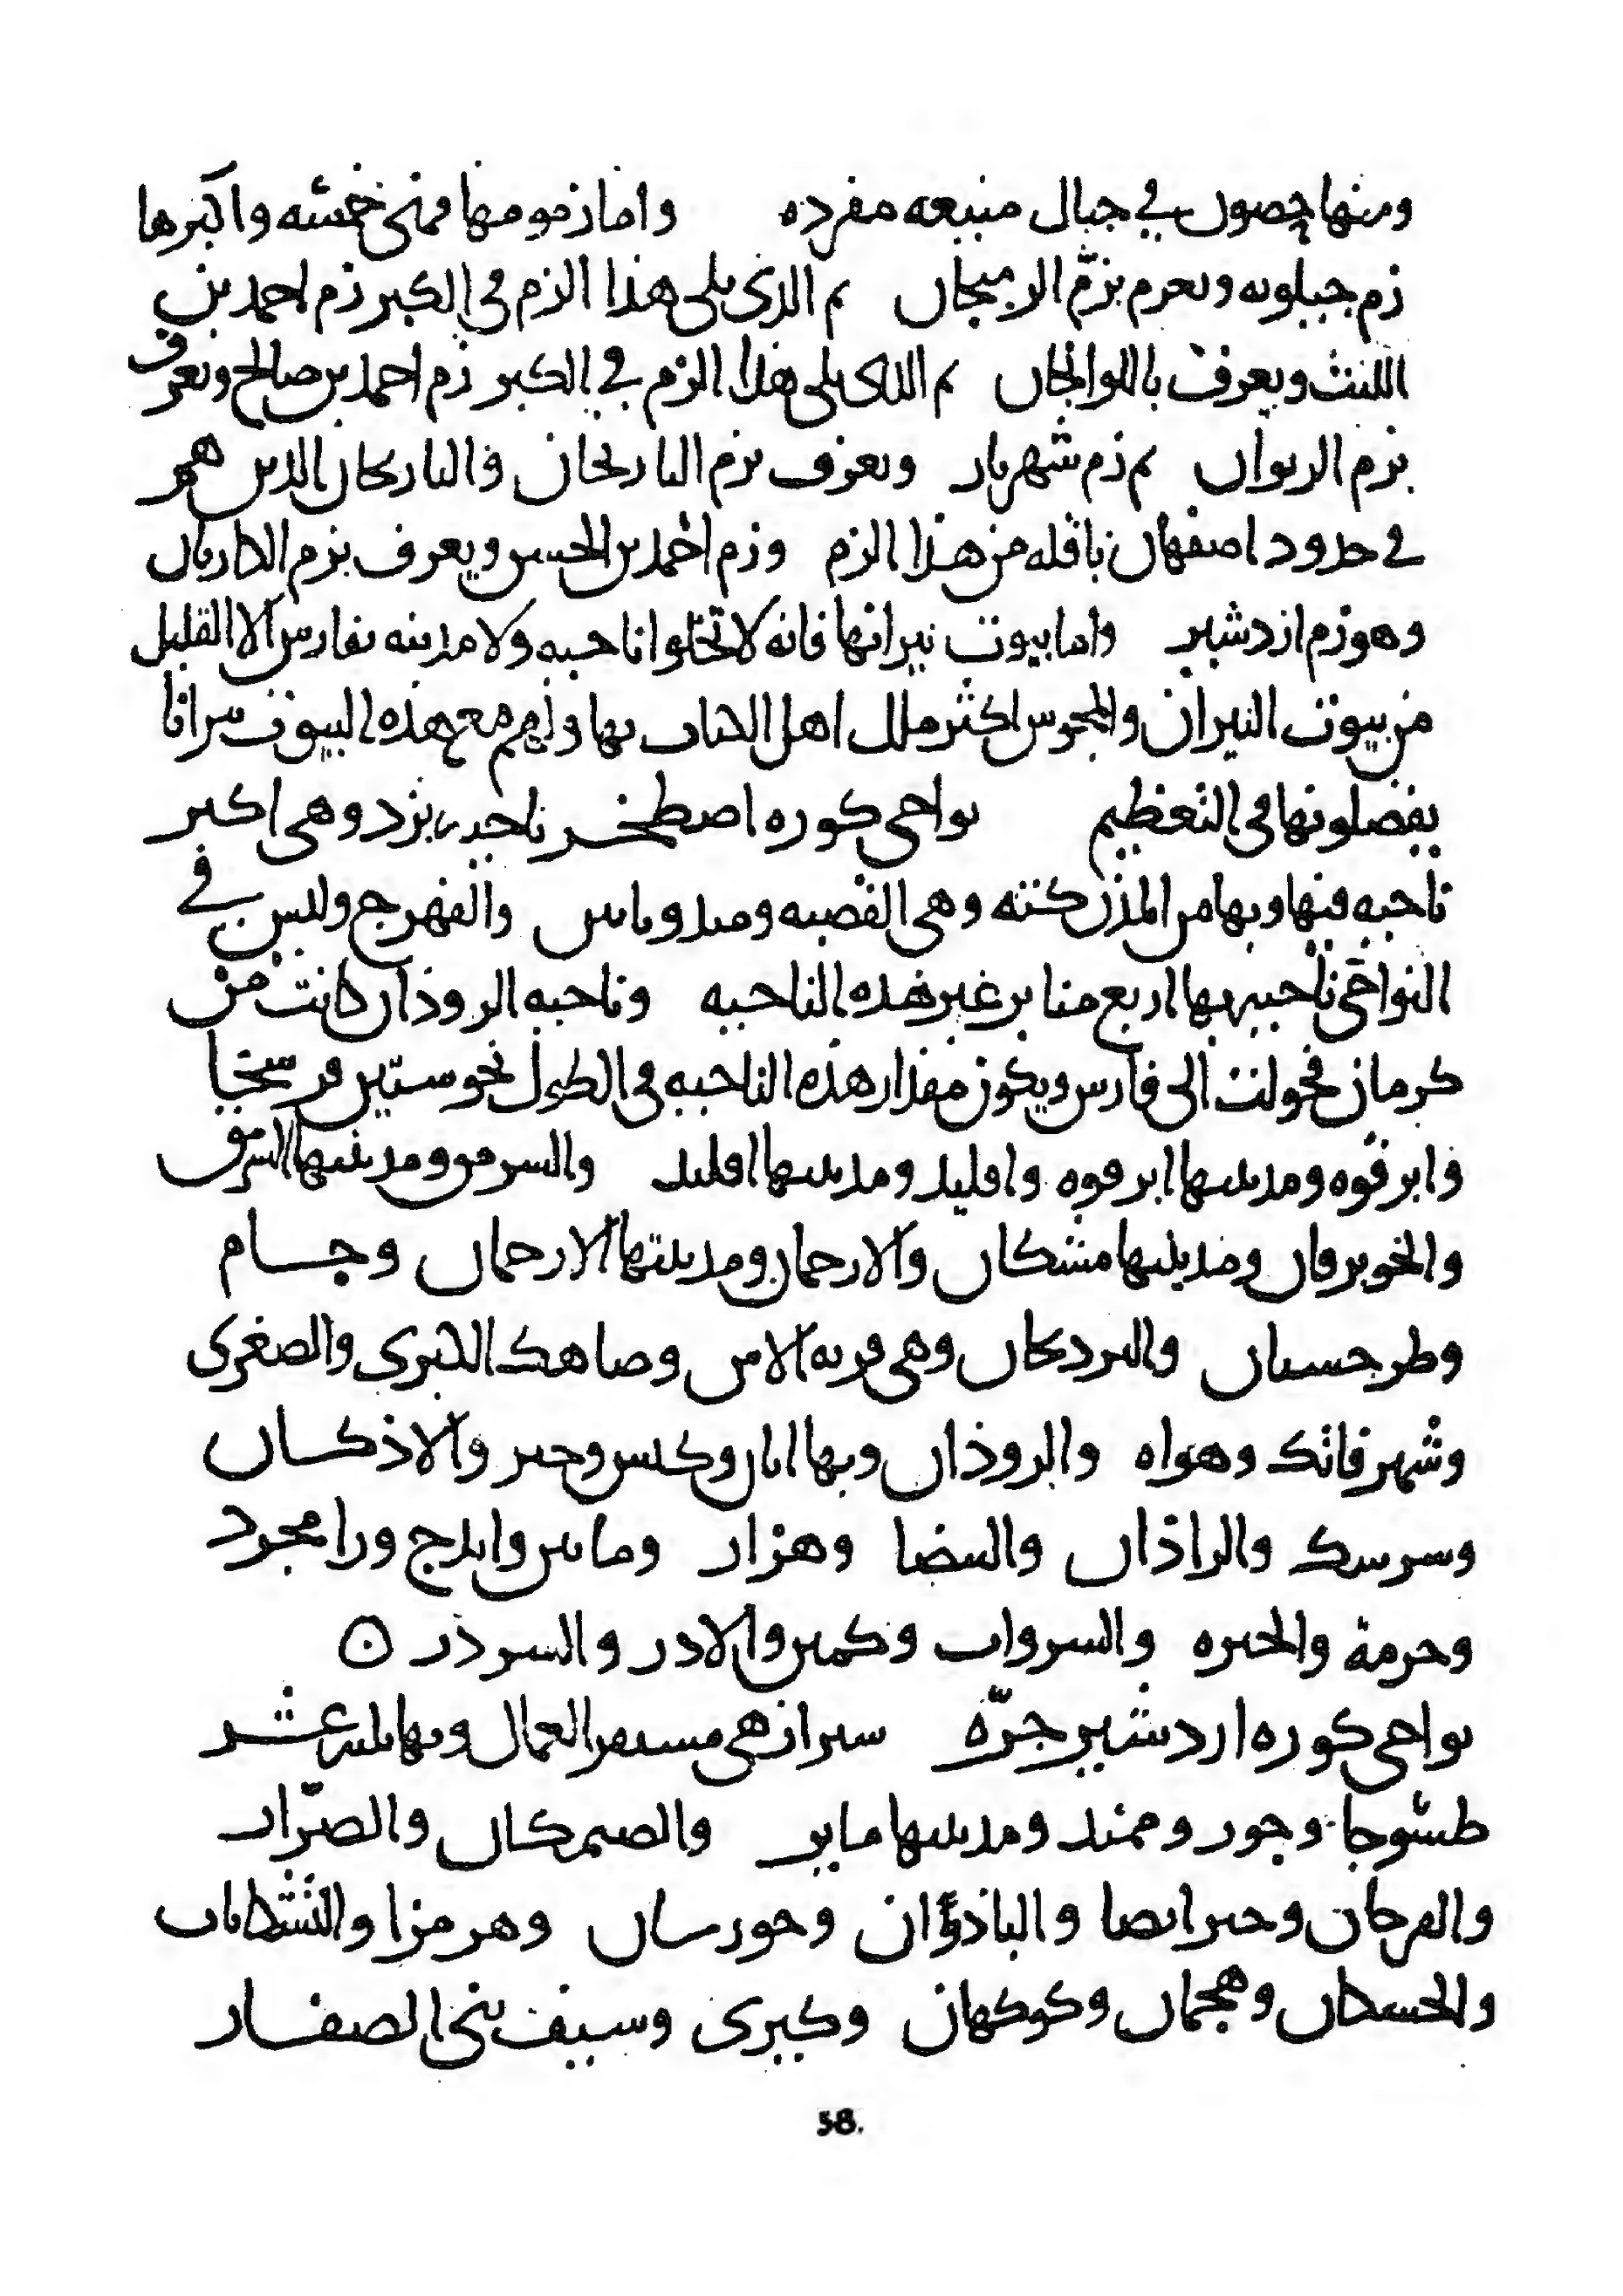 ومنها حصون في جبال منيعه مفرده واما زمومها فهى خمسه واكبرها
زم جيلويه ويعرم بزم الرميجان ثم الذى يلى هذا الزم في الكبر زم احمد بن
الليث ويعرف باللوالجان ثم الذى يلى هذا الزم في الكبر زم احمد بن صالح ويعرف
بزم الريوان ثم زم شهريار ويعرف بزم البازنجان فالبازنجان الذين هم
في حدود اصفهان ناقله من هذا الزم وزم احمد بن الحسن ويعرف بزم الكاريان
وهو زم اردشير واما بيوت نيرانها فانه لا تخلوا ناحيه ولا مدينه بفارس الا القليل
من بيوت النيران والمجوس اكثر ملل اهل الكتاب بها ولهم مع هذه البيوت نيرانا
يفضلونها في التعظيم نواحى كوره اصطخر ناحيه يزد وهى اكبر
ناحيه فيها وبها من المدن كثه وهى القصبه وميبد ونايين والفهرج وليس في
النواحى ناحيه بها اربع منابر غير هذه الناحيه وناحيه الروذان كانت من
كرمان فحولت الى فارس ويكون مقدار هذه الناحيه في الطول نحو ستين فرسخا
وابرقوه ومدينتها ابرقوه واقليد ومدينتها اقليد والسرمق ومدينتها السرمق
والخوبرقان ومدينتها مشكان والارجمان ومدينتها الارجمان وجام
وطرخيشان والبردنجان وهى قريه الاس وصاهك الكبرى والصغرى
وشهرفاتك وهراه والروذان وبها ابان وكلس وحبر والاذكان
وسرسك والراذان والبيضا وهزار ومايين وايرج ورامجرد
وخرمة والحيره والسروات وكمين والارد والسردن ○
نواحى كوره اردشير خرّه شيراز هى مستقر العمال وبها ثلثه عشر
طسوجا وجور وممند ومدينتها ماير والصيمكان والصرّار
والفرجان وحبرايصا والباذوان وخورستان وهرمزا والتشكانات
والحسكان وهجمان وكوكهان وكيرى وسيف بنى الصفار
58.